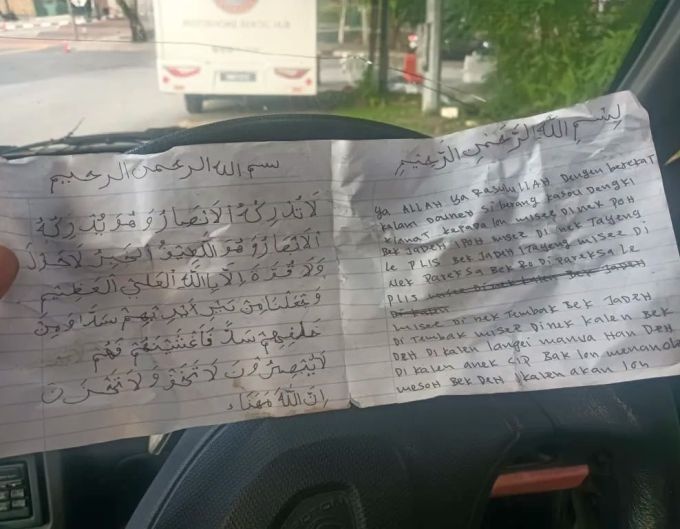 بسم الله الرحمن الرحيم
لَا تُدْرِكُهُ الْاَبْصَارُ وَهُوَ يُدْرِكُ
الْاَبْصَارَ وَهُوَ اللَّطِيْفُ الْخَبِيْرُ لَاحَوْلَ
وَلَا قُوَّةَ اِلَّا بِاللّٰهِ الْعَلِيِّ الْعَظِيْمِ
وَجَعَلْنَا مِنْ بَيْنِ اَيْدِيْهِمْ سَدًّا وَمِنْ
خَلْفِهِمْ سَدًّا فَاَغْشَيْنٰهُمْ فَهُمْ
لَا يُبْصِرُوْنَ لَا تَخَفْ وَلَا تَحْزَنْ
اِنَّ اللّٰهَ مَعَنَا
بِسْمِ اللّٰهِ الرَّحْمٰنِ الرَّحِيْمِ
ya ALLAH ya RasulULLAH Dengen berekat
kalam Di urang kasou Dengki
kianat kerapa lon misee Dinek POH
Bek JADEH IPOH misee Di nek Tayeng
Le PLIS Bek JADEH ITayeng misee Di
Nek Pareksa Bek Ro Di Pareksa Le
PLIS
misee Di nek Tembak Bek JADEH
Di Tembak misee Dinek kalen Bek
DEH Di kalen langei manua Han DEH
Di kalen anek CIP Bak lon
mesoH Bek DEH Ikalen akan lon